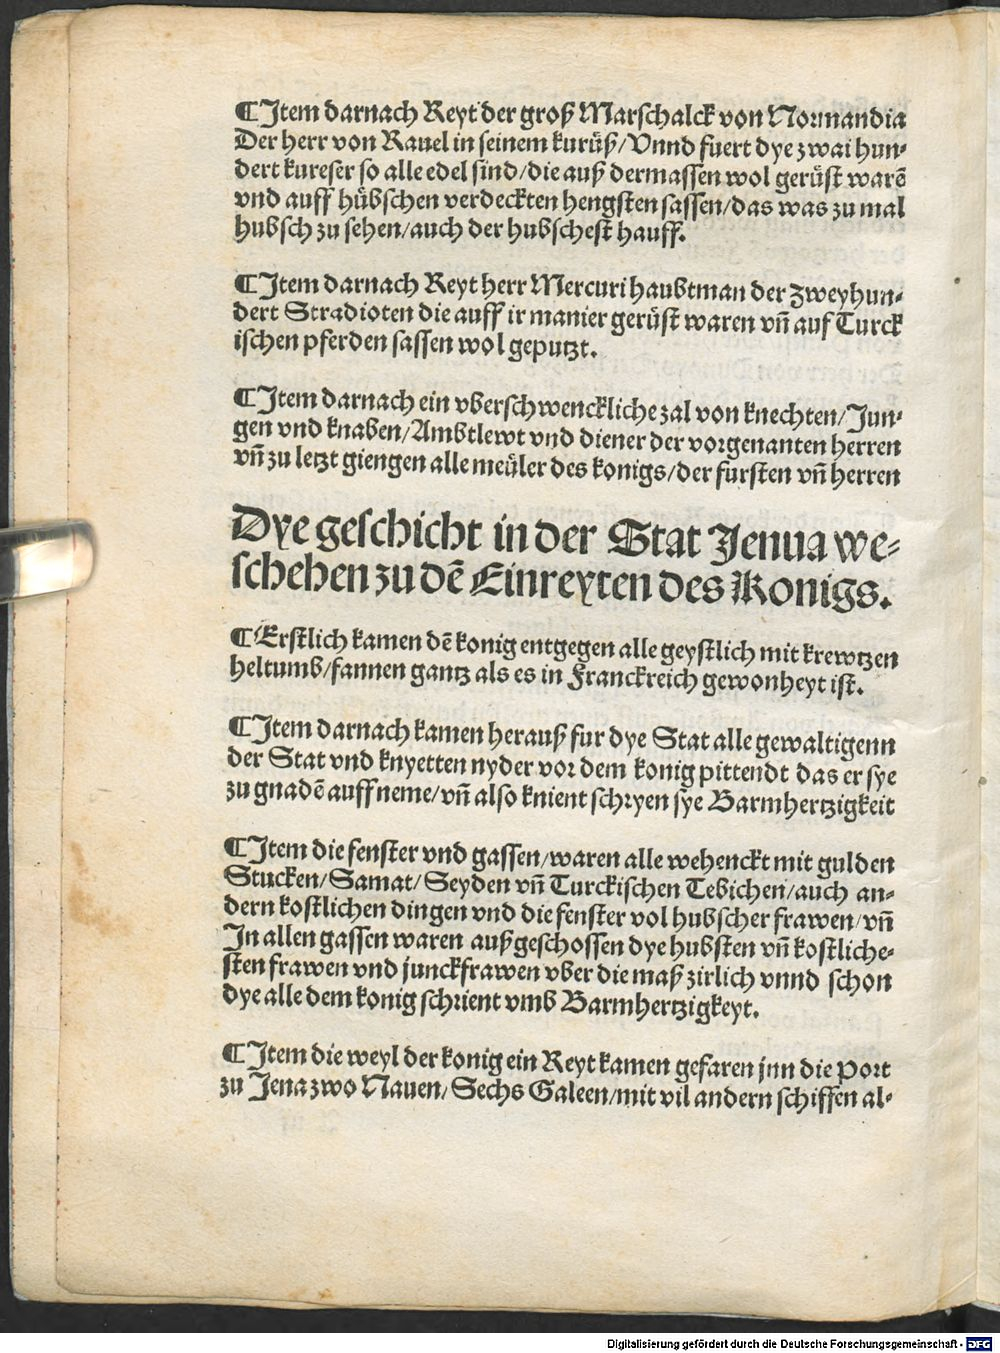 ¶Item darnach Reyt der groß Marschalck von Normandia
Der herr von Rauel in seinem kurüß/Vnnd fuert dye zwai hun⸗
dert kureser so alle edel sind/die auß dermassen wol gerüst warē
vnd auff hübschen verdeckten hengsten sassen/das was zu mal
hubsch zu sehen/auch der hubschest hauff.
¶Item darnach Reyt herr Mercuri haubtman der zweyhun⸗
dert Stradioten die auff ir manier gerüst waren vn̄ auf Turck
ischen pferden sassen wol geputzt.
¶Item darnach ein vberschwenckliche zal von knechten/Jun⸗
gen vnd knaben/Ambtlewt vnd diener der vorgenanten herren
vn̄ zu letzt giengen alle meüler des konigs/der fursten vn̄ herren
Dye geschicht in der Stat Jenua we⸗
schehen zu dē Einreyten des Konigs.
¶Erstlich kamen dē konig entgegen alle geystlich mit krewtzen
heltumb/fannen gantz als es in Franckreich gewonheyt ist.
¶Item darnach kamen herauß fur dye Stat alle gewaltigenn
der Stat vnd knyetten nyder vor dem konig pittendt das er sye
zu gnadē auffneme/vn̄ also knient schryen sye Barmhertzigkeit
¶Item die fenster vnd gassen/waren alle wehenckt mit gulden
Stucken/Samat/Seyden vn̄ Turckischen Tebichen/auch an⸗
dern kostlichen dingen vnd die fenster vol hubscher frawen/vn̄
In allen gassen waren außgeschossen dye hubsten vn̄ kostliche⸗
sten frawen vnd junckfrawen vber die maß zirlich vnnd schon
dye alle dem konig schrient vmb Barmhertzigkeyt.
¶Item die weyl der konig ein Reyt kamen gefaren jnn die Port
zu Jena zwo Nauen/Sechs Galeen/mit vil andern schiffen al⸗
Digitalisierung gefördert durch die Deutsche Forschungsgemeinschaft - DFG